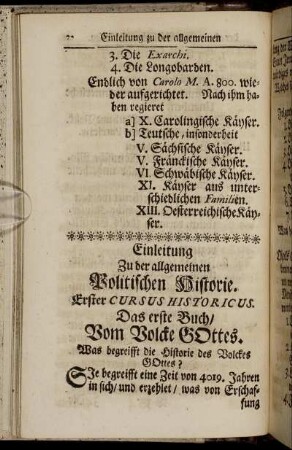 Einleitung zu der allgemeinen
3. Die Exarchi.
4. Die Longobarden.
Endlich von Carolo M. A. 800. wie-
der aufgerichtet. Nach ihm ha-
ben regieret
a] X. Carolingische Käyser.
b] Teutsche, insonderheit
V. Sächsische Käyser.
V. Fränckische Käyser.
VI. Schwäbische Käyser.
XI. Käyser aus unter-
schiedlichen Familien.
XIII. Oesterreichische Käy-
ser.
Einleitung
Zu der allgemeinen
Politischen Historie.
Erster CURSUS HISTORICUS.
Das erste Buch/
Vom Volcke GOttes.
Was begreifft die Historie des Volckes
GOttes?
SIe begreifft eine Zeit von 4019. Jahren
in sich/ und erzehlet/ was von Erschaf-
fung